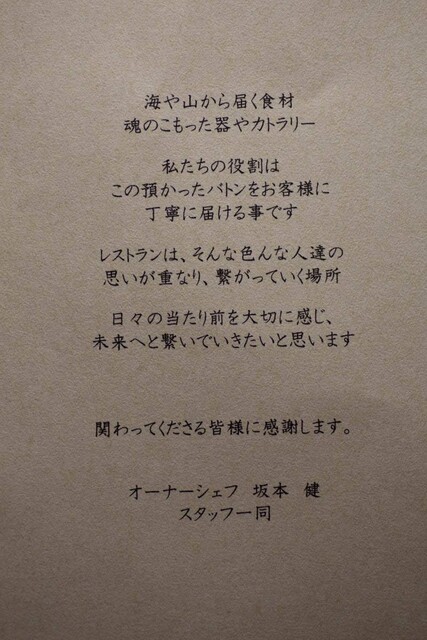 海や山から届く食材
魂のこもった器やカトラリー
私たちの役割は
この預かったバトンをお客様に
丁寧に届ける事です
レストランは、そんな色んな人達の
思いが重なり、繋がっていく場所
日々の当たり前を大切に感じ、
未来へと繋いでいきたいと思います
関わってくださる皆様に感謝します。
オーナーシェフ 坂本 健
スタッフ一同